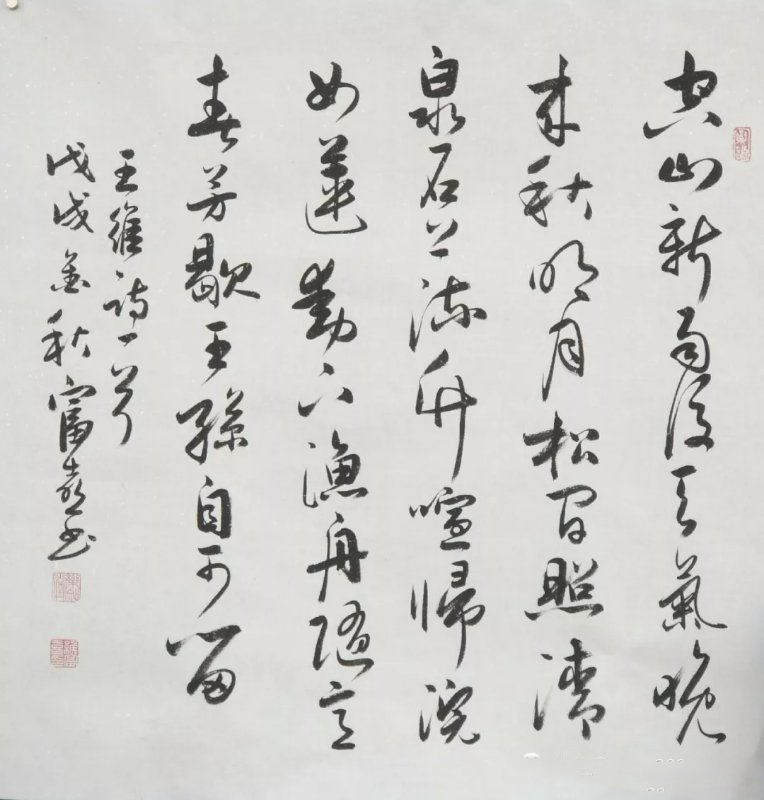 空山新雨後天氣晚
来秋明月松間照清
泉石上流竹喧歸浣
女蓮動下漁舟隨意
春芳歇王孫自可留
王維詩一首
戊戌金秋富喜书